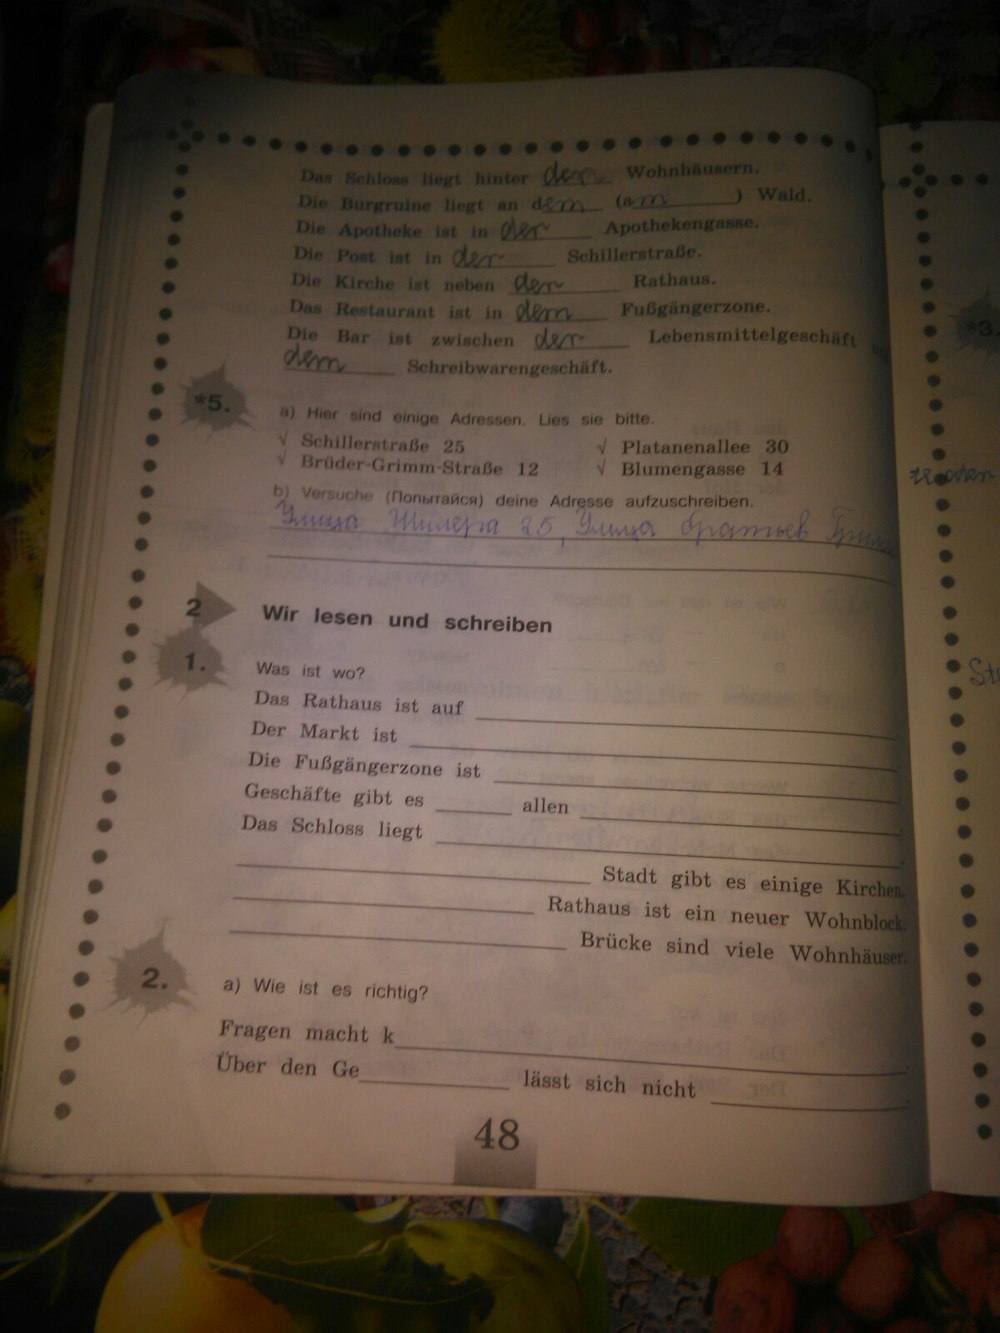 Das Schloss liegt hinter den Wohnhäusern.
Die Burgruine liegt an dem (am) Wald.
Die Apotheke ist in der Apothekengasse.
Die Post ist in der Schillerstraße.
Die Kirche ist neben den Rathaus.
Das Restaurant ist in dem Fußgängerzone.
Die Bar ist zwischen der Lebensmittelgeschäft
dem Schreibwarengeschäft.
*5.
a) Hier sind einige Adressen. Lies sie bitte.
√ Schillerstraße 25 √ Platanenallee 30
√ Brüder-Grimm-Straße 12 √ Blumengasse 14
b) Versuche (Попытайся) deine Adresse aufzuschreiben.
Улица Шилера 25, Улица братьев
2 Wir lesen und schreiben
1.
Was ist wo?
Das Rathaus ist auf ____
Der Markt ist ____
Die Fußgängerzone ist ____
Geschäfte gibt es ____ allen ____.
Das Schloss liegt ____.
____ Stadt gibt es einige Kirchen.
____ Rathaus ist ein neuer Wohnblock.
____ Brücke sind viele Wohnhäuser.
2.
a) Wie ist es richtig?
Fragen macht k____.
Über den Ge____ lässt sich nicht ____.
48
*3